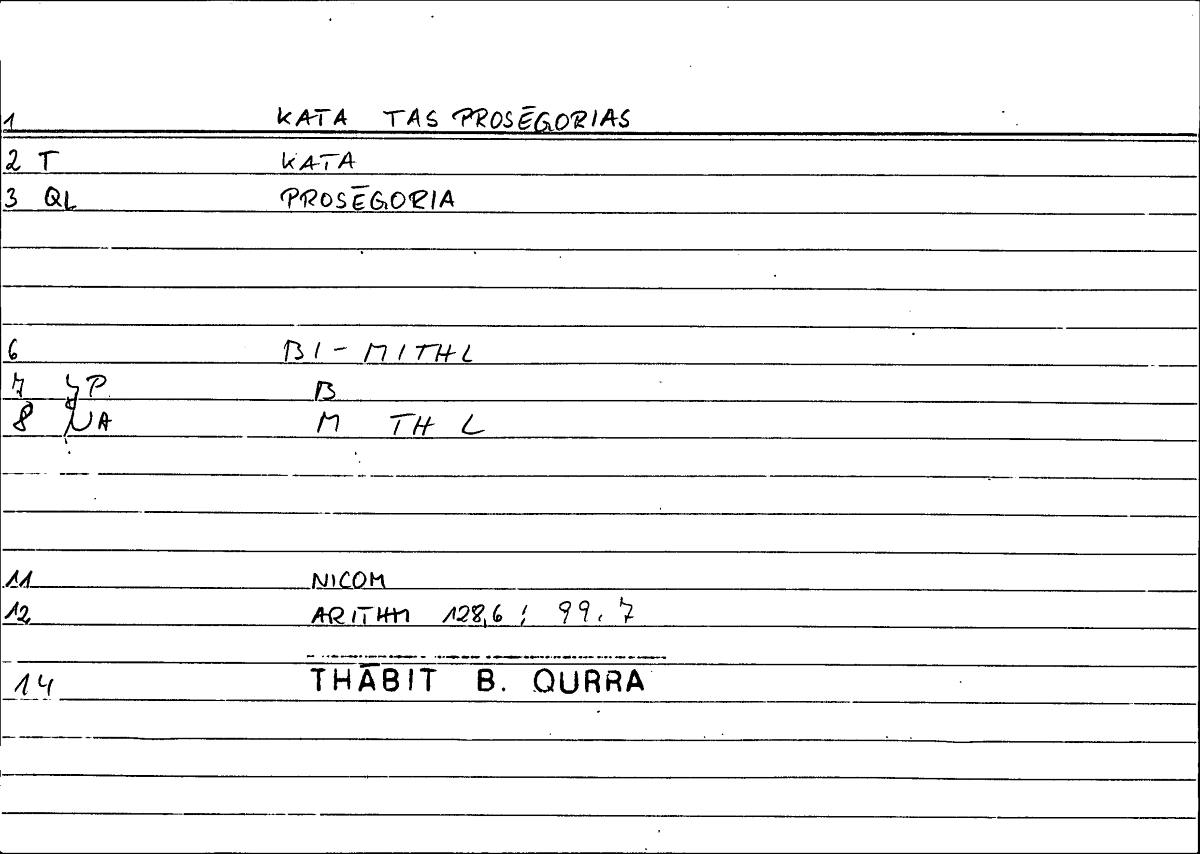 1 KATA TAS PROSĒGORIAS
2 T KATA
3 QL PROSĒGORIA
6 BI-MITHL
7 P B
8 NA M TH L
11 NICOM
12 ARITHM 128,6 ; 99.7
14 THĀBIT B. QURRA